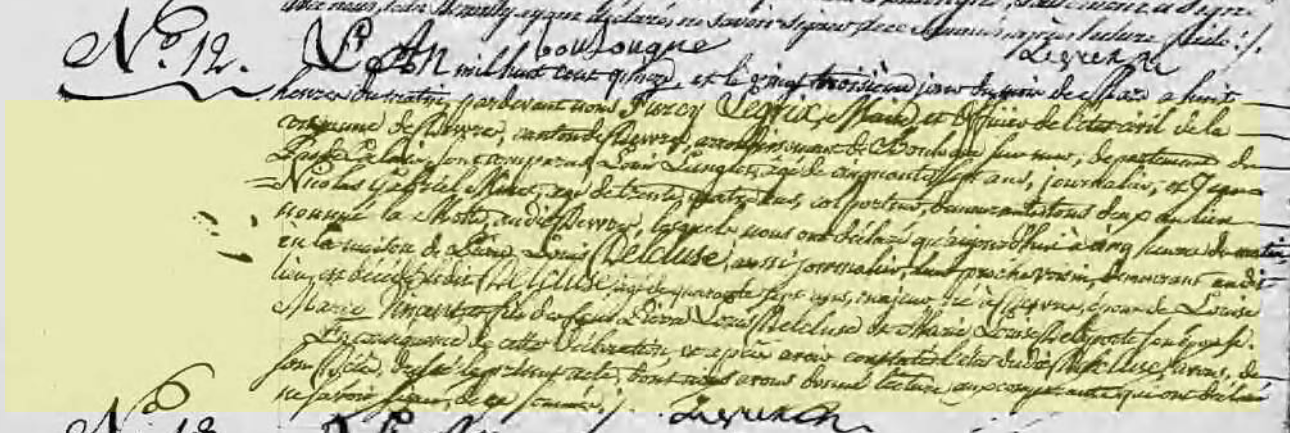 ayant déclaré, ne savoir signer de ce sommés, après lecture faite ./.
N.º 12. L'An mil huit cent quinze, et le vingt troisième jour du mois de Mars a huit
heures du matin, pardevant nous Furcy Maire, et officier de l'état civil de la
commune de Desvres, canton de Desvres, arrondissement de Boulogne sur mer, département du
Pas de Calais, sont comparus, Louis âgé de cinquante sept ans, journalier, et
Nicolas Gabriel âgé de trente quatre ans, colporteur, demeurants tous deux au lieu
nommé la Motte, audit Desvres, lesquels nous ont déclaré qu'aujourd'hui à cinq heures du matin,
en la maison de Pierre Louis Delcluse, aussi journalier, leur proche voisin, demeurant audit
lieu, est décédé ledit Delcluse âgé de quarante sept ans, majeur, né à Desvres, époux de Louise
Marie Vincent, et fils de feu Pierre Louis Delcluse et Marie Louise Delporte son épouse.
En conséquence de cette déclaration, et après avoir constaté l'état dudit Delcluse, avons, de
son Décès, dressé le présent acte, dont nous avons donné lecture aux comparants qui ont déclaré
ne savoir signer, de ce sommés ./.